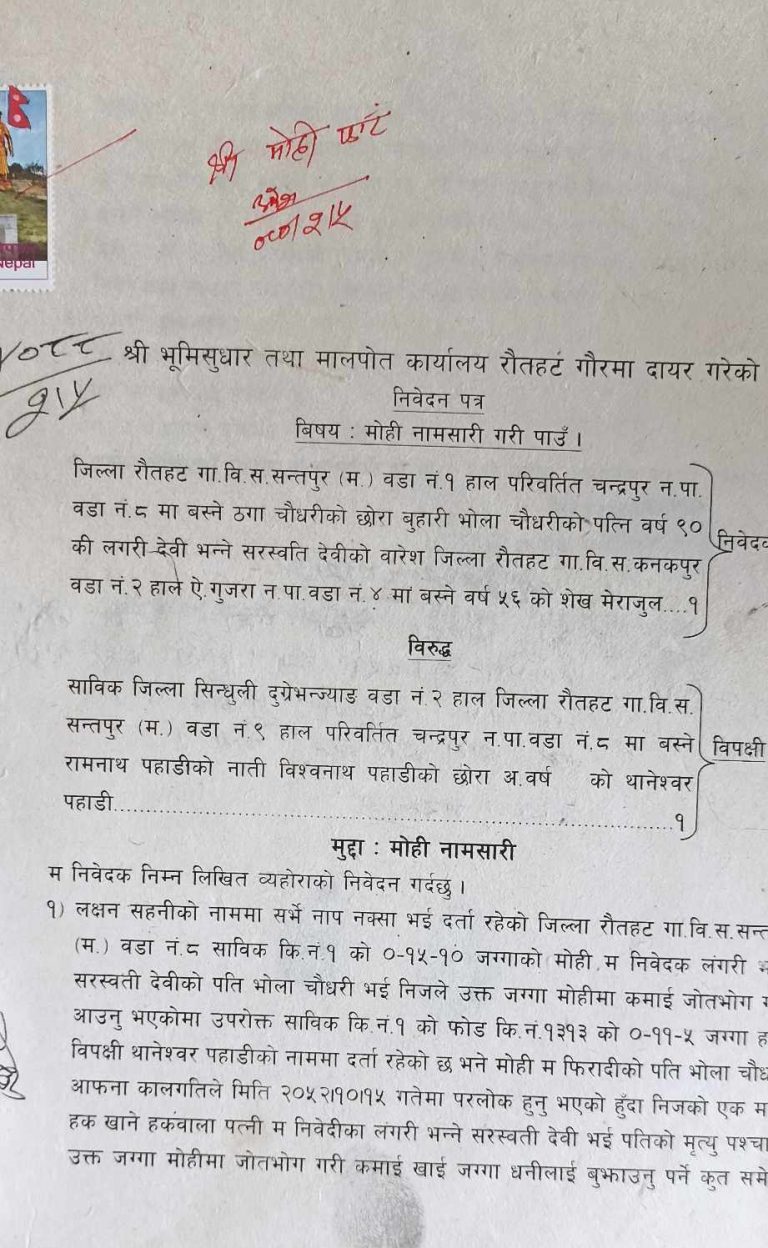 Nepal
श्री मोही फाँट
श्री भूमिसुधार तथा मालपोत कार्यालय रौतहट गौरमा दायर गरेको
निवेदन पत्र
बिषय : मोही नामसारी गरी पाउँ ।
जिल्ला रौतहट गा.वि.स.सन्तपुर (म.) वडा नं.१ हाल परिवर्तित चन्द्रपुर न.पा.
वडा नं.८ मा बस्ने ठगा चौधरीको छोरा बुहारी भोला चौधरीको पत्नि वर्ष ९०
की लगरी देवी भन्ने सरस्वति देवीको वारेश जिल्ला रौतहट गा.वि.स.कनकपुर
वडा नं.२ हाल ऐ.गुजरा न पा.वडा नं.४ मा बस्ने वर्ष ५६ को शेख मेराजुल....१
निवेदक
विरुद्ध
साविक जिल्ला सिन्धुली दुग्रेभन्ज्याङ वडा नं.२ हाल जिल्ला रौतहट गा.वि.स.
सन्तपुर (म.) वडा नं.९ हाल परिवर्तित चन्द्रपुर न.पा.वडा नं.८ मा बस्ने
रामनाथ पहाडीको नाती विश्वनाथ पहाडीको छोरा अ.वर्ष को थानेश्वर
पहाडी....................................................................१
विपक्षी
मुद्दा : मोही नामसारी
म निवेदक निम्न लिखित व्यहोराको निवेदन गर्दछु ।
१) लक्षन सहनीको नाममा सर्भे नाप नक्सा भई दर्ता रहेको जिल्ला रौतहट गा.वि.स.सन्त
(म.) वडा नं.८ साविक कि.नं.१ को ०-१५-१० जग्गाको मोही म निवेदक लंगरी
सरस्वती देवीको पति भोला चौधरी भई निजले उक्त जग्गा मोहीमा कमाई जोतभोग
आउनु भएकोमा उपरोक्त साविक कि.नं.१ को फोड कि.नं.१३१३ को ०-११-५ जग्गा ह
विपक्षी थानेश्वर पहाडीको नाममा दर्ता रहेको छ भने मोही म फिरादीको पति भोला चौध
आफना कालगतिले मिति २०५२।१०।१५ गतेमा परलोक हुनु भएको हुँदा निजको एक म
हक खाने हकवाला पत्नी म निवेदीका लंगरी भन्ने सरस्वती देवी भई पतिको मृत्यु पश्चा
उक्त जग्गा मोहीमा जोतभोग गरी कमाई खाई जग्गा धनीलाई बुझाउनु पर्ने कुत समे